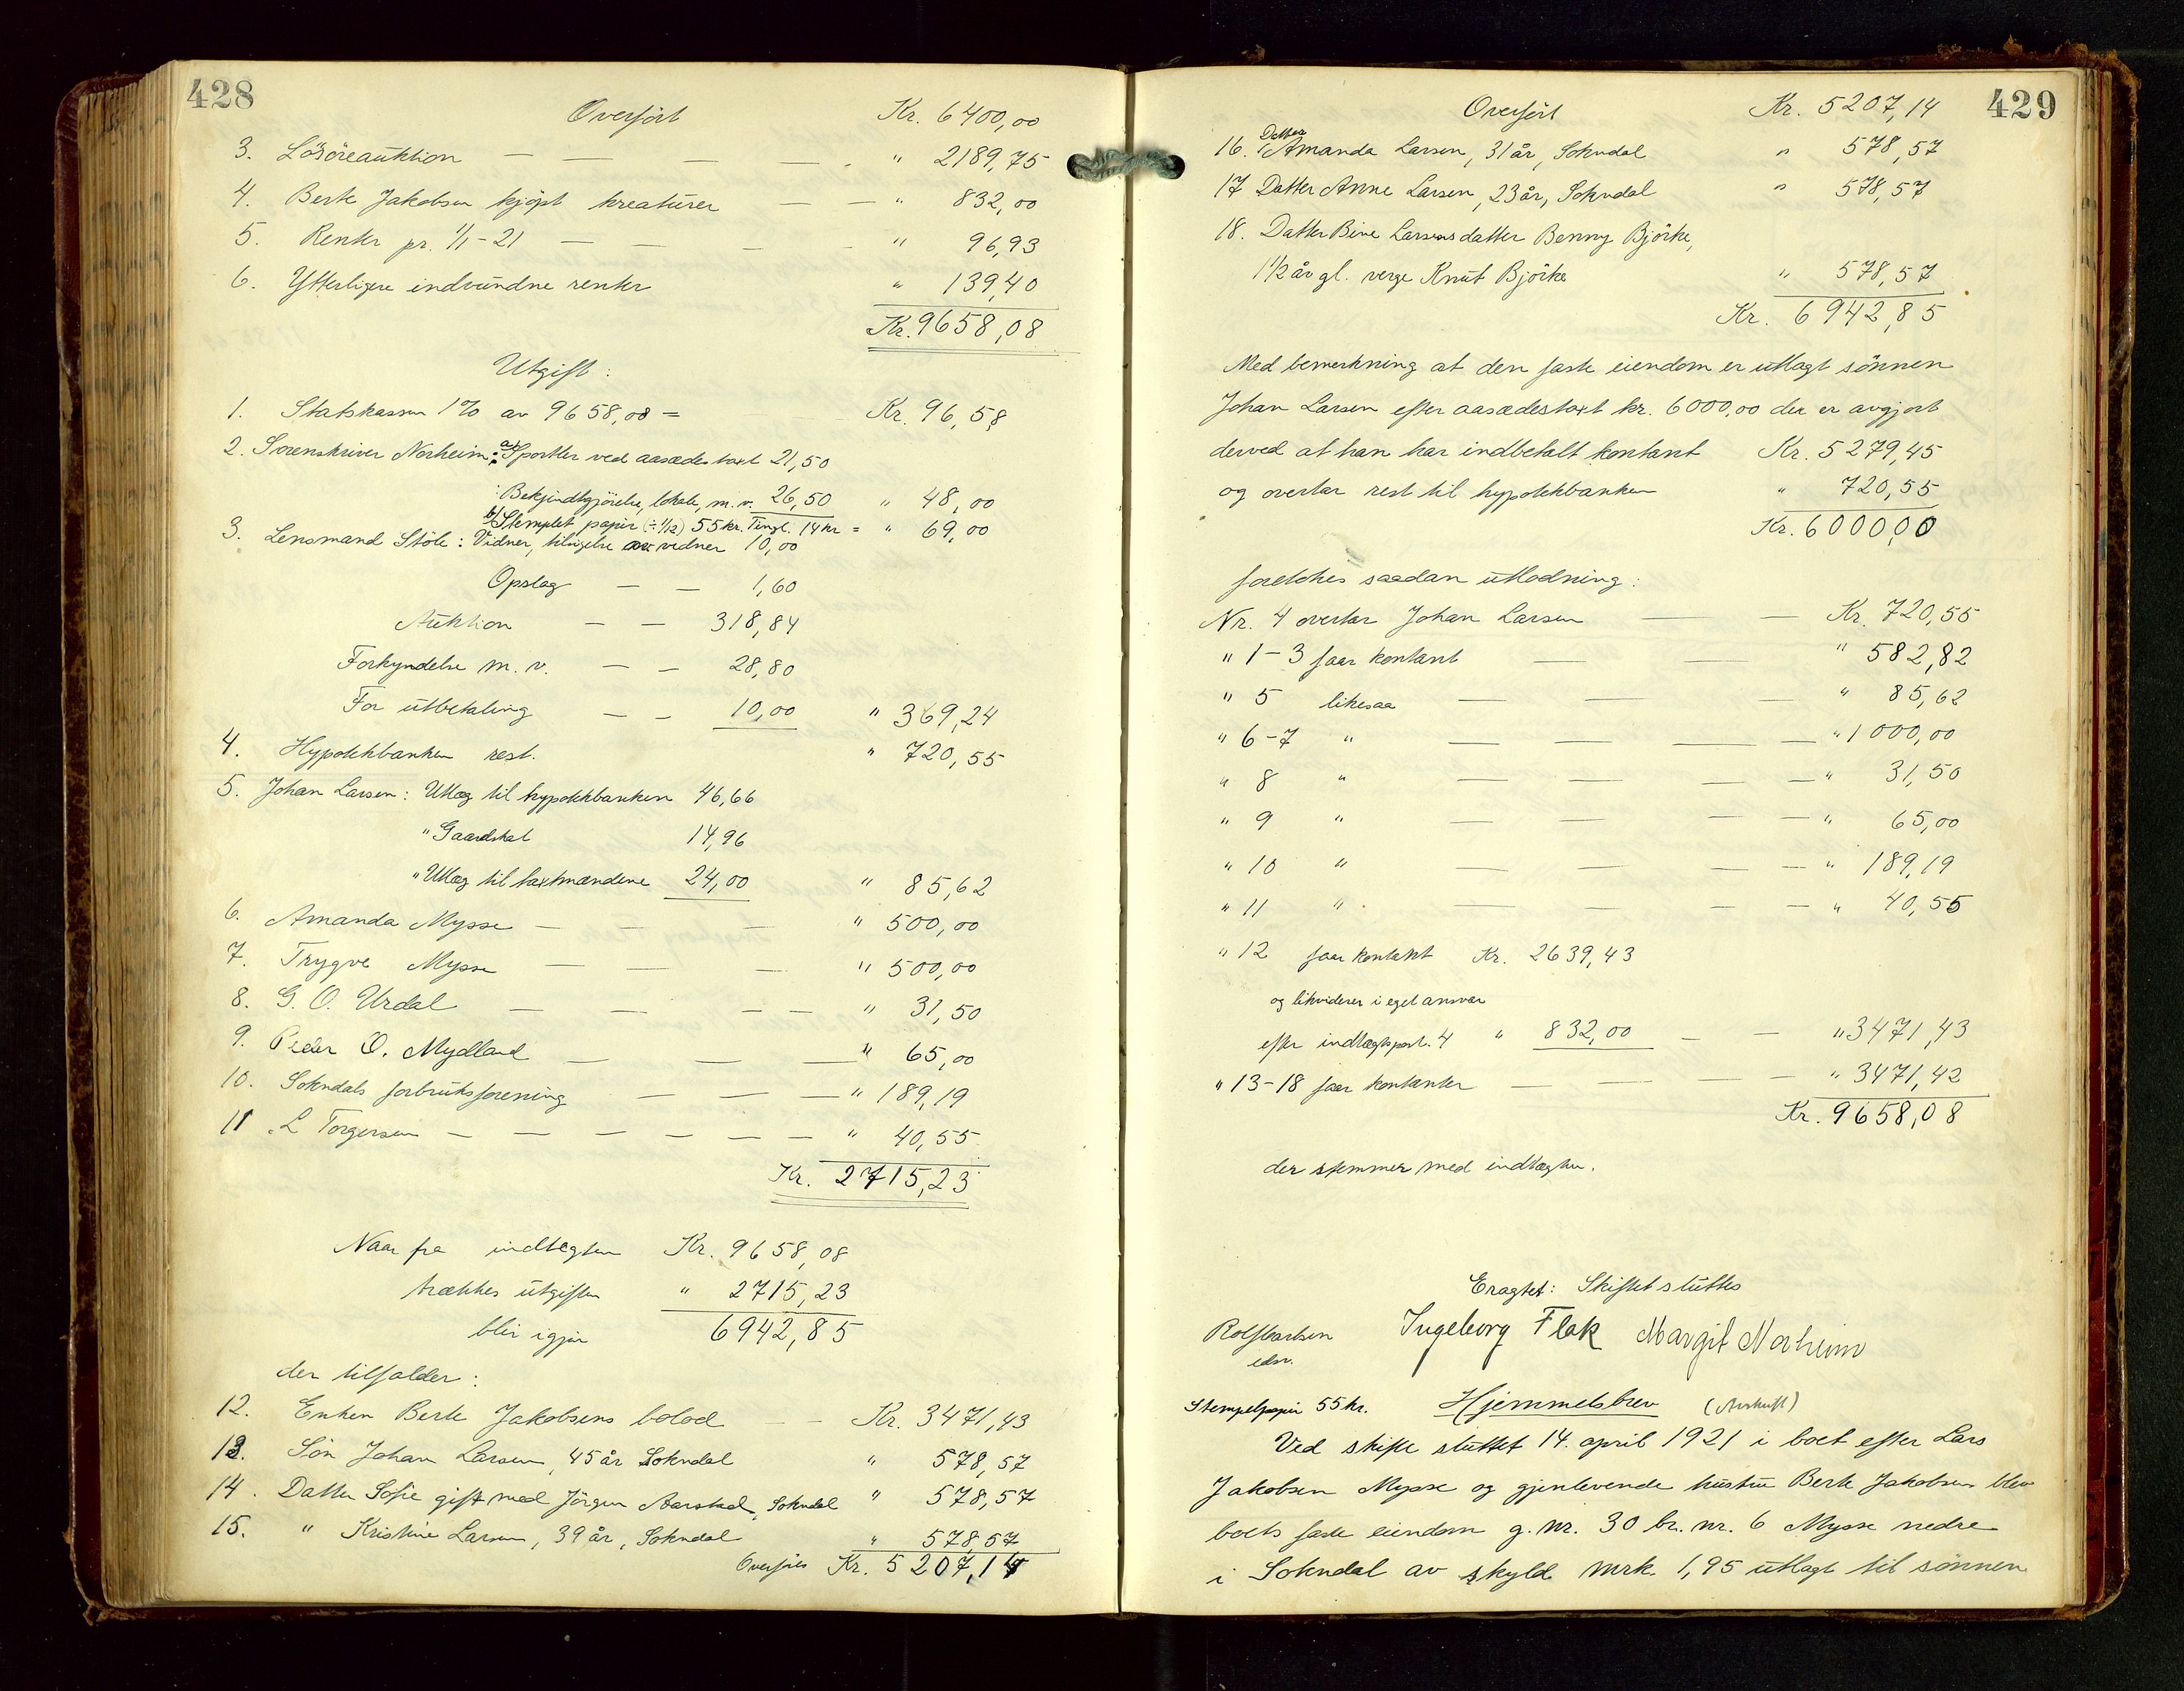 428
Overført Kr. 6400,00
3. Lösöreauktion — — — — " 2189,75
4. Berte Jakobsen kjöpt kreaturer — — " 832,00
5. Renter pr. 1/1-21 — — — — " 96,93
6. Ytterligere indvundne renter " 139,40
Kr. 9658,08
Utgift:
1. Statskassen 1% av 9658,08 = Kr. 96,58
2. Sorenskriver Norheim: a) Sportler ved aasædestaxt 21,50
: Bekjendtgjörelse, lokale, m.v. 26,50 " 48,00
b) Stemplet papir (÷ 1/12) 55 kr. Tingl. 14 kr = " 69,00
3. Lensmand Stöle: Vidner, tilsigelse av vidner 10,00
Opslag — — 1,60
Auktion — — 318,84
Forkyndelse m.v. — — 28,80
For utbetaling — — 10,00 " 369,24
4. Hypotekbanken rest. " 720,55
5. Johan Larsen: Utlæg til hypotekbanken 46,66
" Gaardskat 14,96
" Utlæg til taxtmændene 24,00 " 85,62
6. Amanda Mysse — — — " 500,00
7. Trygve Mysse — — — " 500,00
8. G. O. Urdal — — — — " 31,50
9. Peder O. Mydland — — — " 65,00
10. Sokndals forbruksforening — — — " 189,19
11. L Torgersen — — — — — — " 40,55
Kr. 2715,23
Naar fra indtægten Kr. 9658,08
trækkes utgiften " 2715,23
blir igjen 6942,85
der tilfalder:
12. Enken Berte Jakobsens bolod — — Kr. 3471,43
13. Sön Johan Larsen, 45 år Sokndal " 578,57
14. Datter Sofie gift med Jörgen Aarstad, Sokndal " 578,57
15. " Kristine Larsen, 39 år, Sokndal " 578,57
Overföres Kr. 5207,14
429
Overfört Kr. 5207,14
16. Datter Amanda Larsen, 31 år, Sokndal " 578,57
17 Datter Anne Larsen, 23 år, Sokndal " 578,57
18. Datter Bine Larsensdatter Benny Björke,
1½ år gl. verge Knut Björke " 578,57
Kr. 6942,85
Med bemerkning at den faste eiendom er utlagt sönnen
Johan Larsen efter aasædestaxt kr. 6000,00 der er avgjort
derved at han har indbetalt kontant Kr. 5279,45
og overtar rest til hypotekbanken " 720,55
Kr. 6000,00
foretokes saadan utlodning:
Nr. 4 overtar Johan Larsen — — Kr. 720,55
" 1-3 faar kontant — — — " 582,82
" 5 likesaa — — — " 85,62
" 6-7 " — — — — " 1000,00
" 8 " — — — — " 31,50
" 9 " — — — — " 65,00
" 10 " — — — — " 189,19
" 11 " — — — — " 40,55
" 12 faar kontant Kr. 2639,43
og likviderer i eget ansvar
efter indtægtspost. 4 " 832,00 — — " 3471,43
" 13-18 faar kontanter — — — " 3471,42
Kr. 9658,08
der stemmer med indtægten.
Eragtet: Skiftet sluttes
Rolf
edsv. Ingeborg Flak Margit Norheim
Stempelpapir 55 kr. Hjemmelsbrev (Avskrift)
Ved skifte sluttet 14. april 1921 i boet efter Lars
Jakobsen Mysse og gjenlevende hustru Berte Jakobsen blev
boets faste eiendom g.nr. 30 br.nr. 6 Mysse nedre
i Sokndal av skyld mrk. 1,95 utlagt til sönnen